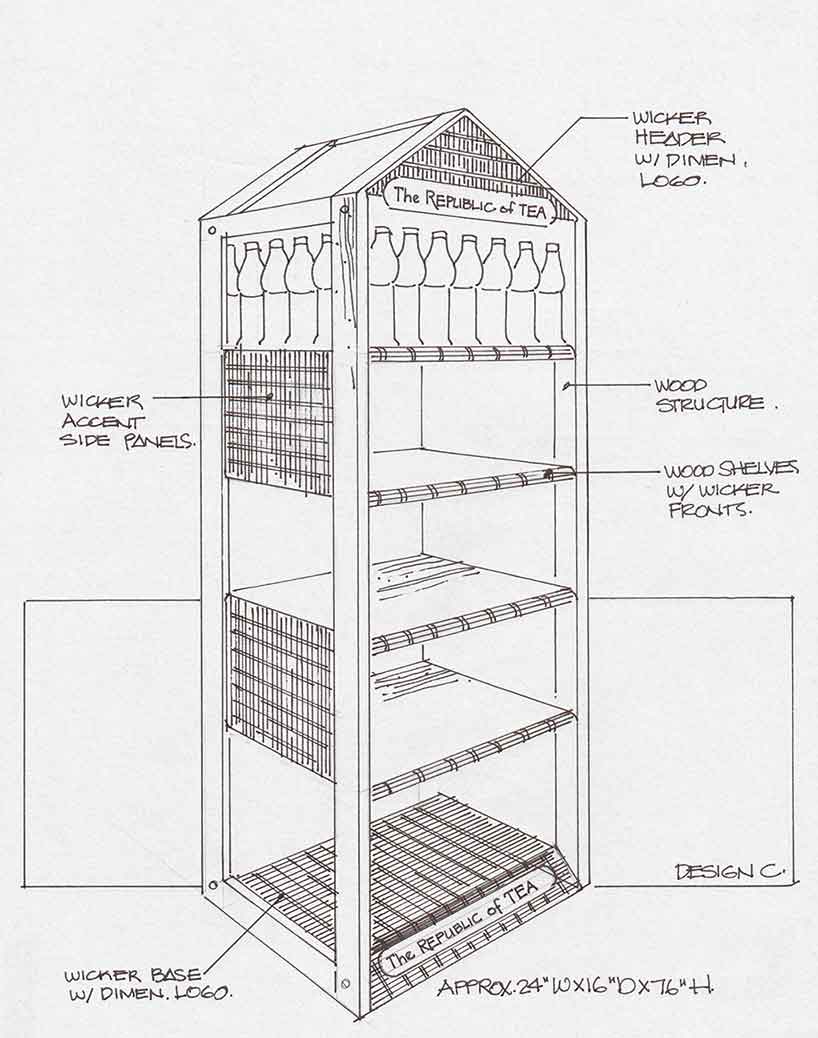 WICKER
HEADER
W/ DIMEN.
LOGO.
The REPUBLIC of TEA
WICKER
ACCENT
SIDE PANELS.
WOOD
STRUCTURE.
WOOD SHELVES
W/ WICKER
FRONTS.
DESIGN C.
The REPUBLIC of TEA
WICKER BASE
W/ DIMEN. LOGO.
APPROX. 24"W X 16"D X 76"H.